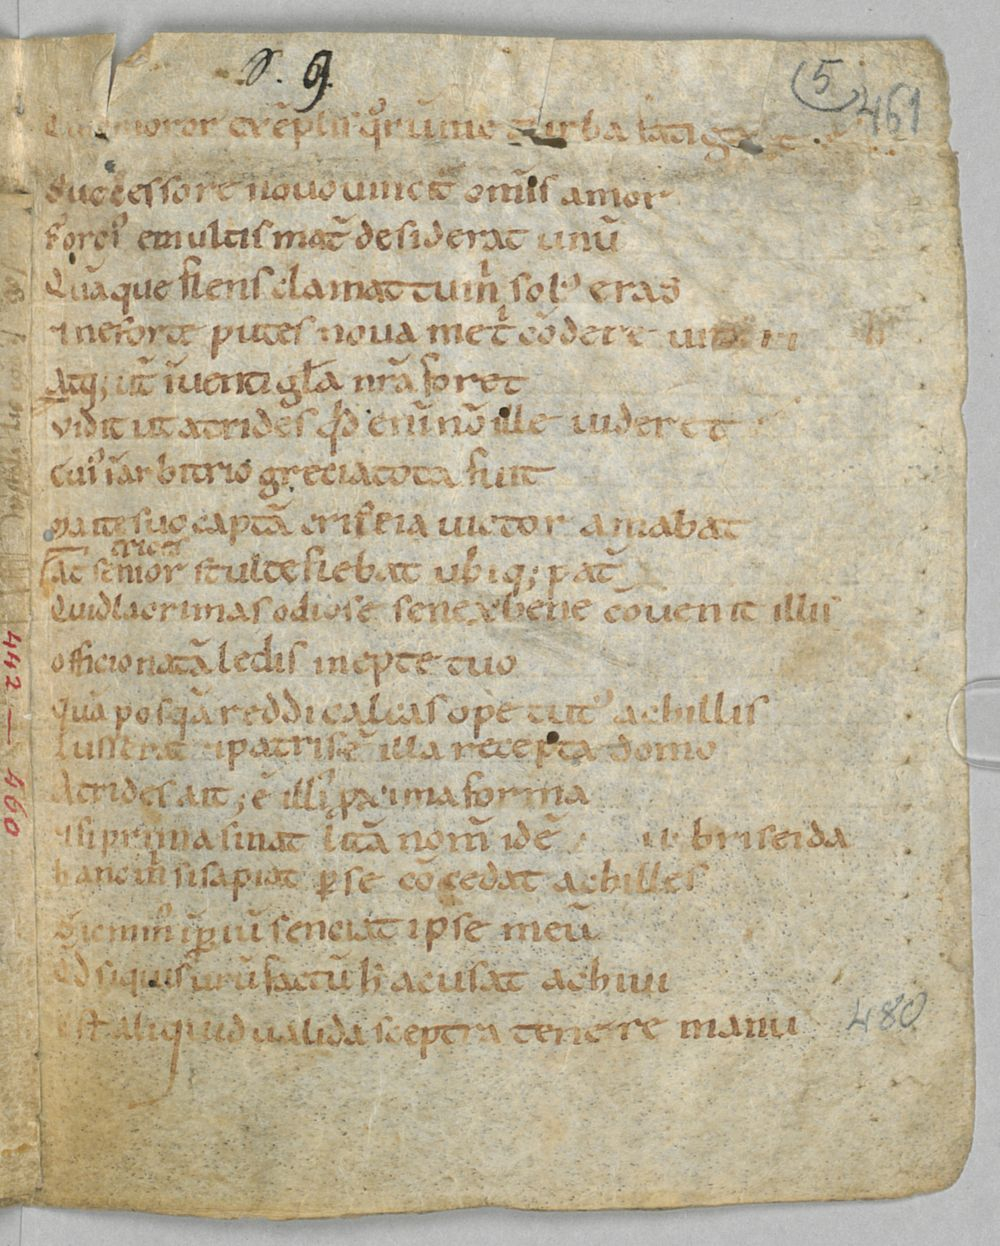 S. 9.
(5) 461
Quid moror exẽplis qͦrũ me turba fatigat
Successore nouo uincit̃ om̃is amor
Forciꝰ emultis mat̃ desiderat unũ
Quãque flens clamat tu m̃ solꝰ eras
Ine forte putes noua me t͛ cõdere
Atq; ut̃ ĩuenti gľa nr̃a foret
Vidit ut atrides qd̕ eni nõ ille uideret
Cuiꝰ ĩarbitrio grecia tota fuit
Marte suo captã victor amabat
At senior stulte flebat ubiq; pat̃
Quid lacrimas odiose senex bene cõuenit illis
officio natã ledis inepte tuo
Quã posquã reddi calcas ope tutꝰ achillis
Iusserat patris ẽ illa recepta domo
Atrides ait; ẽ illiꝰ ꝓxima forma
si prima sinat nom̃ idẽ briseida
hanc m̃ si sapiat ꝑse cõcedat achilles
Sic min ĩꝑiũ senciat ipse meũ
Qd siquis urũ factũ h̃ acusat achiui
est aliquid ualida sceptra tenere manu
480
442 — 460